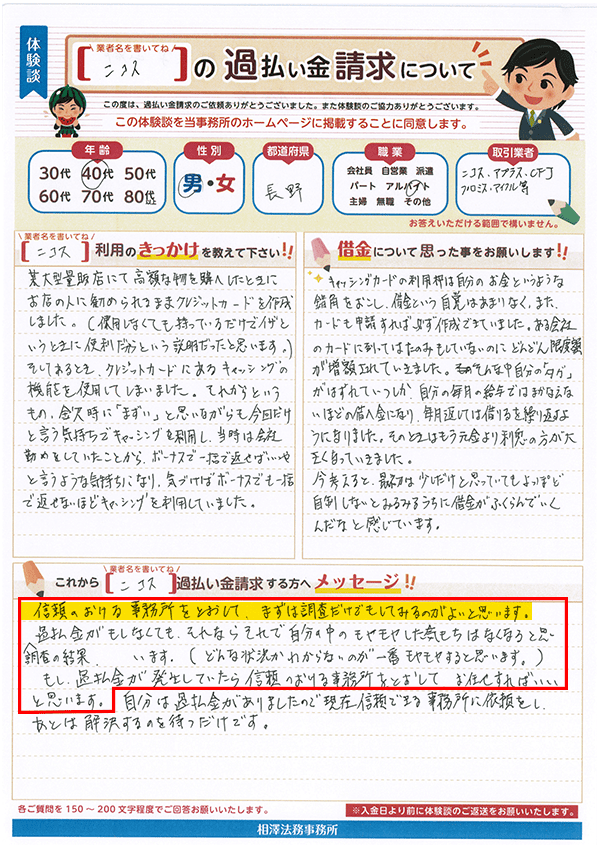 体験談
業者名を書いてね
[ニコス]の過払い金請求について
この度は、過払い金請求のご依頼ありがとうございました。また体験談のご協力ありがとうございます。
この体験談を当事務所のホームページに掲載することに同意します。
年齢
30代 40代 50代
60代 70代 80代以上
性別
男・女
都道府県
長野
職業
会社員 自営業 派遣
パート アルバイト
主婦 無職 その他
取引業者
ニコス、アプラス、CFJ
プロミス、アイフル等
お答えいただける範囲で構いません。
業者名を書いてね
[ニコス]利用のきっかけを教えて下さい!!
某大型量販店にて高額な物を購入したときに
お店の人に勧められるままクレジットカードを作成
しました。(使用しなくても持っているだけでイザと
いうときに便利だからという説明だったと思います。)
そしてあるとき、クレジットカードにあるキャッシングの
機能を使用してしまいました。それからという
もの、金欠時に「まずい」と思いながらも今回だけ
と言う気持ちでキャッシングを利用し、当時は会社
勤めをしていたことから、ボーナスで一括で返せばいいや
と言うような気持ちになり、気づけばボーナスでも一括
で返せないほどキャッシングを利用していました。
借金について思った事をお願いします!!
キャッシングカードの利用枠は自分のお金というような
錯角をおこし、借金という自覚はあまりなく、また、
カードも申請すれば必ず作成できていました。ある会社
のカードに到ってはたのみもしていないのにどんどん限度額
が増額されていきました。そんな中自分の"タガ"
がはずれていつしか自分の毎月の給与ではまかなえな
いほどの借入金になり、毎月返しては借りるを繰り返すよ
うになりました。そのときはもう元金より利息の方が大
きくなっていきました。
今考えると、最初は少しだけと思っていてもよっぽど
自制しないとみるみるうちに借金がふくらんでいく
んだなと感じています。
業者名を書いてね
これから[ニコス]過払い金請求する方へメッセージ!!
信頼のおける事務所をとおして、まずは調査だけでもしてみるのがよいと思います。
過払金がもしなくても、それならそれで自分の中のモヤモヤした気もちはなくなると思
調査の結果、います。(どんな状況かわからないのが一番モヤモヤすると思います。)
もし、過払金が発生していたら信頼のおける事務所をとおして お任せすればいい
と思います。自分は過払金がありましたので現在信頼できる事務所に依頼をし、
あとは解決するのを待つだけです。
各ご質問を150~200文字程度でご回答お願いいたします。
※入金日より前に体験談のご返送をお願いいたします。
相澤法務事務所